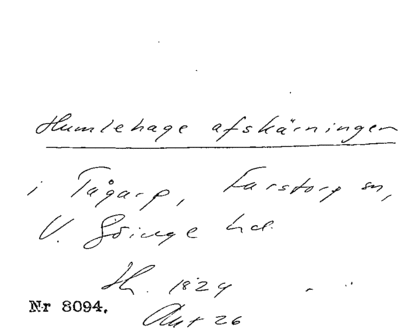 Humlehage afskärningen
i Tågarp, Farstorp sn,
V. Göinge hd.
Sk. 1824
Nr 8094.
Akt 26